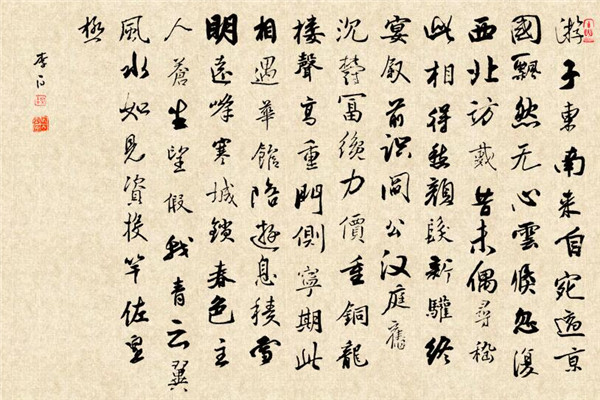 游子東南来自宛適京
國飄然无心雲倏忽復
西北訪戴昔未偶尋嵇
此相得愁顏發新驩終
宴叙前識閻公汉庭舊
沉鬱富纔力價重銅龍
樓聲高重門側寧期此
相遇華館陪遊息積雪
明遠峰寒城鎖春色主
人蒼生望假我青云翼
風水如見資投竿佐皇
極
李白